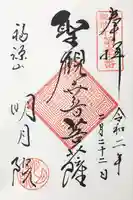 奉拝
令和二年
二月二十二日
聖観世音菩薩
福源山
明月院